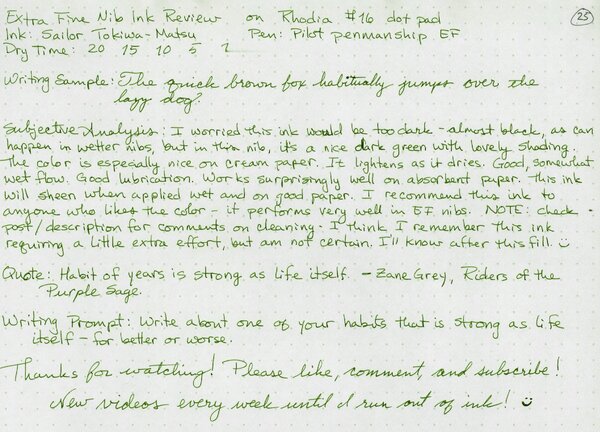 Extra Fine Nib Ink Review on Rhodia #16 dot pad
25
Ink: Sailor Tokiwa-Matsu Pen: Pilot penmanship EF
Dry Time: 20 15 10 5 2
Writing Sample: The quick brown fox habitually jumps over the
lazy dog?
Subjective Analysis: I worried this ink would be too dark - almost black, as can
happen in wetter nibs, but in this nib, it's a nice dark green with lovely shading.
The color is especially nice on cream paper. It lightens as it dries. Good, somewhat
wet flow. Good lubrication. Works surprisingly well on absorbent paper. This ink
will sheen when applied wet and on good paper. I recommend this ink to
anyone who likes the color - it performs very well in EF nibs. NOTE: check
post/description for comments on cleaning. I think I remember this ink
requiring a little extra effort, but am not certain. I'll know after this fill. :)
Quote: Habit of years is strong as life itself. - Zane Grey, Riders of the
Purple Sage.
Writing Prompt: Write about one of your habits that is strong as life
itself - for better or worse.
Thanks for watching! Please like, comment, and subscribe!
New videos every week until I run out of ink! :)